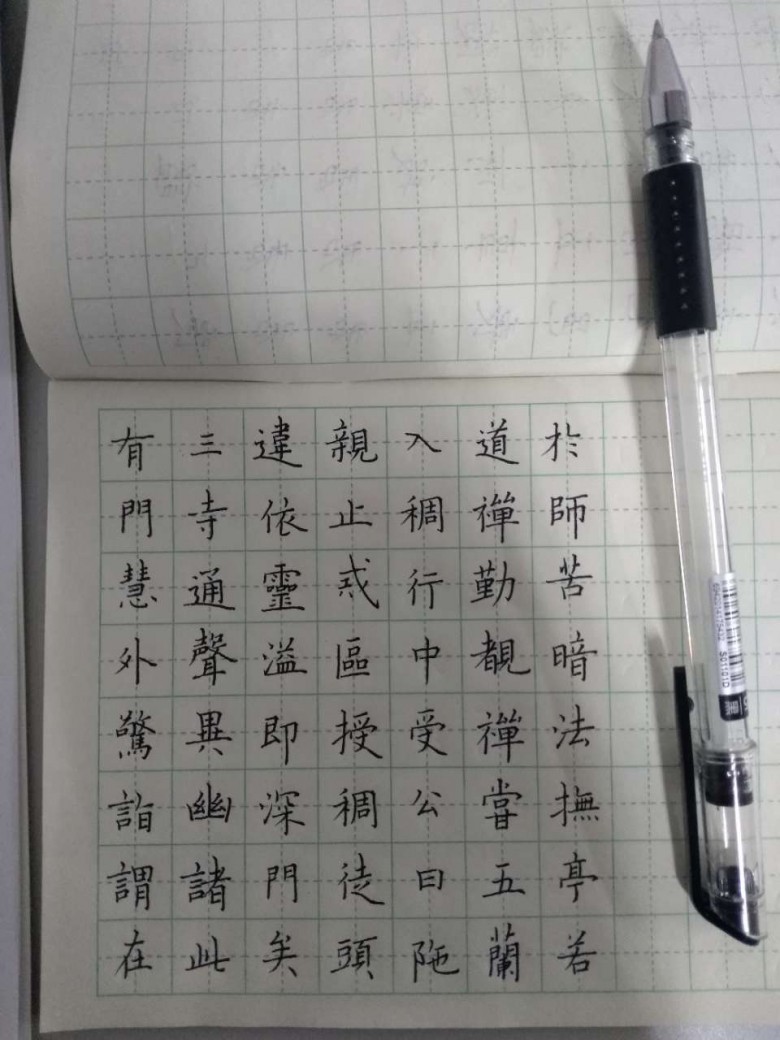 有三違親入道於
門寺依止稠禪師
慧通靈戒行勤苦
外聲溢區中覩暗
驚異即授受禪法
詣幽深稠公嘗撫
謂諸門徒曰五亭
在此矣頭陁蘭若